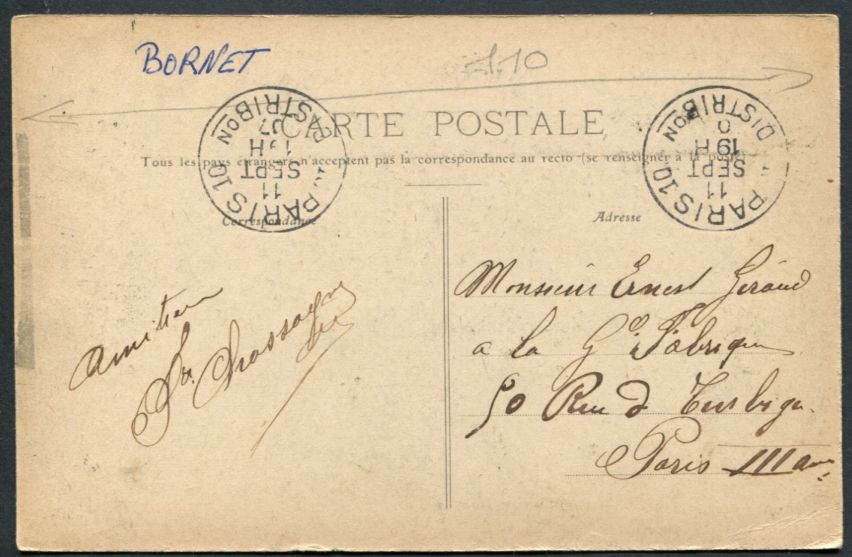 BORNET
1.10
CARTE POSTALE
Tous les pays étrangers n'acceptent pas la correspondance au recto (se renseigner à la poste)
PARIS 10
DISTRIBON
11
SEPT
19H
07
PARIS 10
DISTRIBON
11
SEPT
19H
0
Correspondance
Adresse
Monsieur Ernest Géraud
a la Gde Fabrique
50 Rue d Turbigo
Paris III arr